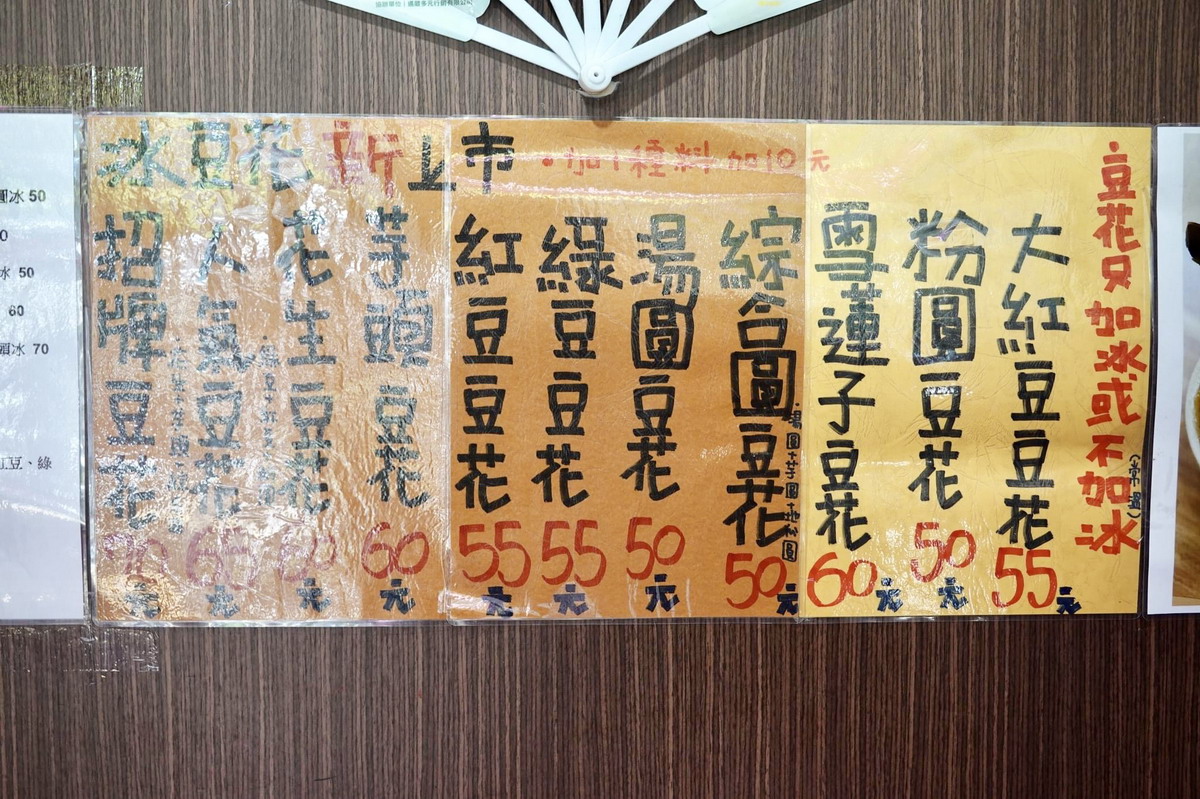 冰豆花新上市
•加1種料加10元
招牌豆花
元
人氣豆花 65元
花生豆花 60元
芋頭豆花 60元
紅豆豆花 55元
綠豆豆花 55元
湯圓豆花 50元
綜合圓豆花 50元
湯圓+芋圓+地瓜圓
雪蓮子豆花 60元
粉圓豆花 50元
大紅豆豆花 55元
豆花只加冰或不加冰
(常溫)
圓冰 50
0
冰 50
60
頭冰 70
紅豆、綠